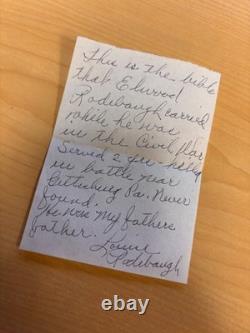 This is the bible
that Elwood
Rodebaugh carried
while he was
in the Civil War
Served 2 yrs
in battle near
Gettisburg Pa. Never
found.
He was my fathers
father.
Rodebaugh
ebay